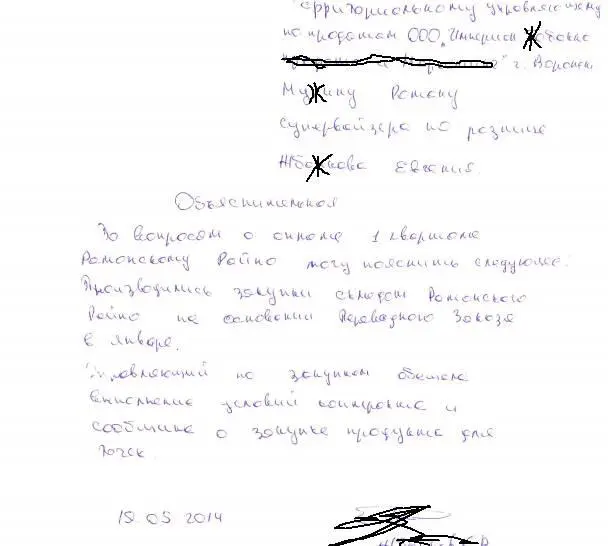 Территориальному управляющему
по продажам ООО „Империя
г. Воронеж
Роману
Супервайзера по рознице
Евгения.
Объяснительная
По вопросам о 1 квартале
Рамонскому Райпо могу пояснить следующее:
Производились закупки складом Рамонского
Райпо на основании Переводного Заказа
в Январе.
Управляющий по закупкам обещала
выполнение условий контракта и
сообщила о закупке продукта для
точек.
19 05 2014